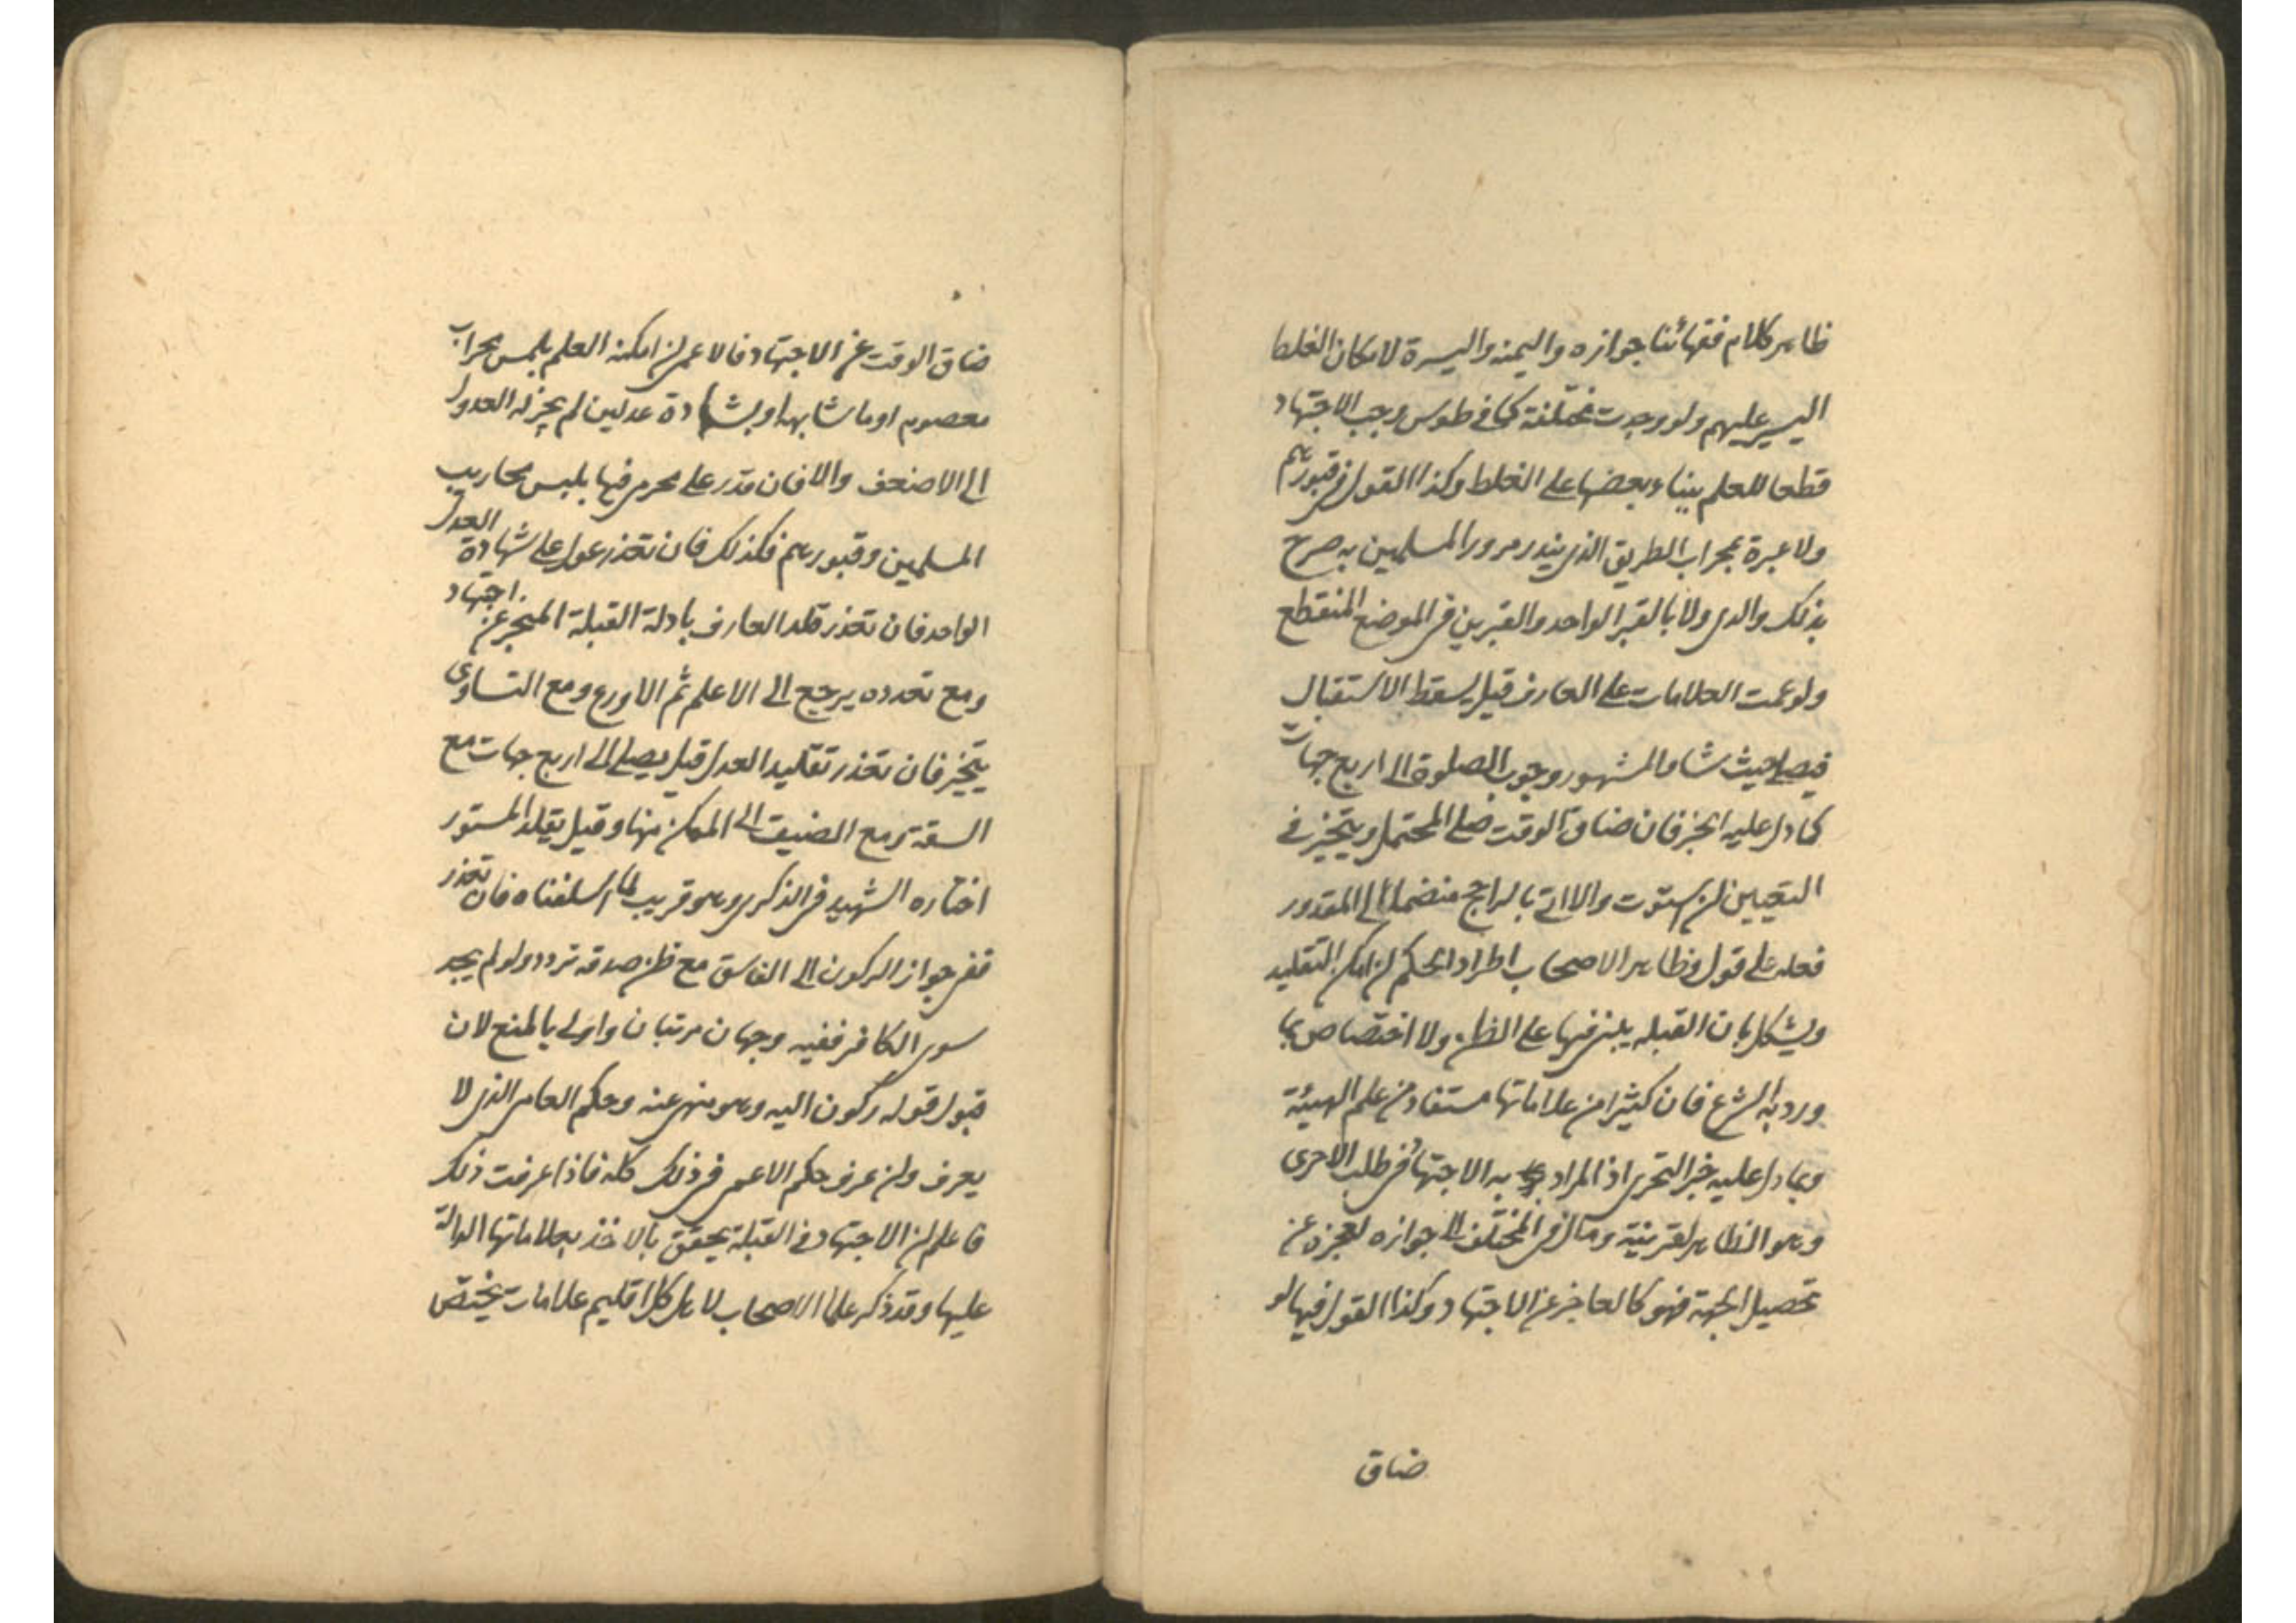 ظاهر كلام فقهائنا جوازه واليمنه واليسرة لامكان الغلط
اليسير عليهم ولو وجدت مختلفة كما في طوس وجب الاجتهاد
قطعا للعلم ببناء بعضها على الغلط وكذا القول في قبورهم
ولا عبرة بمحراب الطريق الذي يندر مرور المسلمين به صرح
بذلك والدي ولا بالقبر الواحد والقبرين في الموضع المنقطع
ولو عمت العلامات على العارف قيل يسقط الاستقبال
فيصلي حيث شاء والمشهور وجوب الصلوة الى اربع جهات
كما دل عليه الخبر فان ضاق الوقت صلى المحتمل ويتخير في
التعيين ان استوت والا اتى بالراجح منضما الى المقدور
فعله على قول وظاهر الاصحاب اطراد الحكم ان امكن التقليد
ويشكل بان القبله يبنى فيها على الظن ولا اختصاص بما
ورد به الشرع فان كثيرا من علاماتها مستفاد من علم الهيئة
وبما دل عليه خبر التحري اذ المراد به الاجتهاد في طلب الاحرى
وهو الظاهر لقرينة ومال في المختلف الى جوازه لعجزه عن
تحصيل الجهة فهو كالعاجز عن الاجتهاد وكذا القول فيما لو
ضاق
ضاق الوقت عن الاجتهاد فالاعمى ان امكنه العلم بلمس محراب
معصوم او ما شابهه او بشهادة عدلين لم يجز له العدول
الى الاضعف والا فان قدر على محرم فيها بلمس محاريب
المسلمين وقبورهم فكذلك فان تعذر عول على شهادة العدل
الواحد فان تعذر قلد العارف بادلة القبلة المخبر عن اجتهاد
ومع تعدده يرجع الى الاعلم ثم الاورع ومع التساوي
يتخير فان تعذر تقليد العدل قيل يصلي الى اربع جهات مع
السعة ومع الضيق الى الممكن منها وقيل يقلد المستور
اختاره الشهيد في الذكرى وهو قريب لما اسلفناه فان تعذر
ففي جواز الركون الى الفاسق مع ظن صدقه تردد ولو لم يجد
سوى الكافر ففيه وجهان مرتبان واولى بالمنع لان
قبول قوله ركون اليه وهو منهي عنه وحكم العامي الذي لا
يعرف وان عرف حكم الاعمى في ذلك كله فاذا عرفت ذلك
فاعلم ان الاجتهاد في القبلة يحقق بالاخذ بعلاماتها الدالة
عليها وقد ذكر علماء الاصحاب لاهل كل اقليم علامات يختص